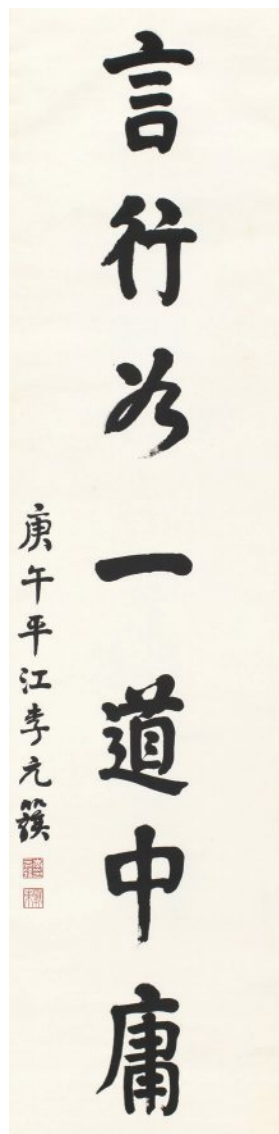 言行一道中庸
庚午平江李元簇